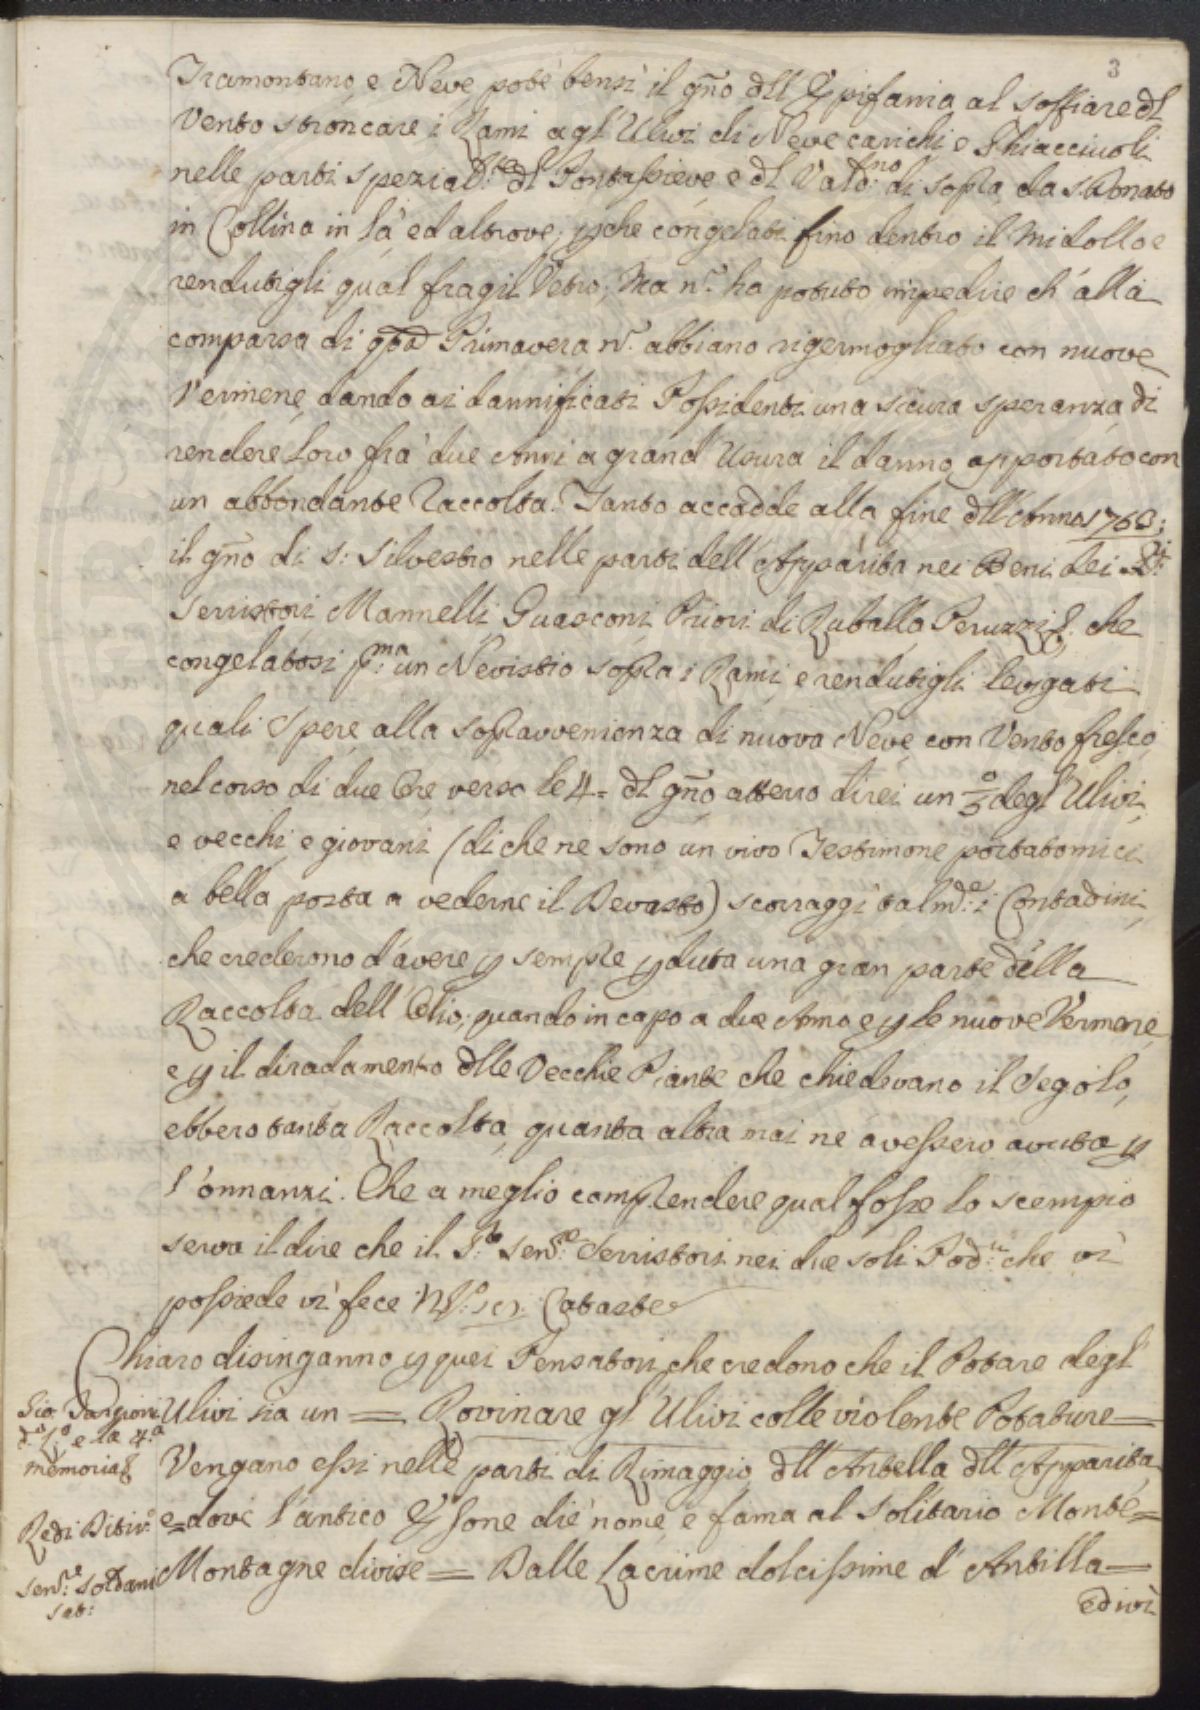 3
Tramontano, e Neve potè bensì il gñо dll' Epifania al soffiare dl
Vento stroncare i Rami agl' Ulivi di Neve carichi e Ghiacciuoli
nelle parti spezialte dl Pontassieve e dl Vald:no di sopra da S. Donato
in Collina in là ed altrove, pche congelati fino dentro il Midollo e
rendutigli qual fragil Vetro; Ma n. ha potuto impedire ch' alla
comparsa di qsta Primavera n. abbiano rigermogliato con nuove
Vermene, dando ai dannificati Possidenti una sicura speranza di
rendere loro frà due Anni a grand' Usura il danno apportato con
un abbondante Raccolta. Tanto accadde alla fine dll' Anno 1768;
il gñо di S: Silvestro nelle parti dell' Apparita nei Beni dei SS:ri
Serristori Mannelli Guasconi Priori di Ruballa Peruzzi &. che
congelatosi p:ma un Nevistio sopra i Rami e rendutigli levigati
quali Spere alla sopravvenienza di nuova Neve con Vento fresco,
nel corso di due Ore verso le 4= dl gñо atterrò direi un 3/0 degl' Ulivi,
e vecchi e giovani (di che ne sono un vivo Testimone portatomici
a bella posta a vederne il Devasto) scoraggì talmd:e i Contadini,
che crederono d'avere p sempre pduta una gran parte della
Raccolta dell' Olio; quando in capo a due Anni e p le nuove Vermene,
e p il diradamento dlle Vecchie Piante che chiedevano il Segolo,
ebbero tanta Raccolta, quanta altra mai ne avessero avuta p
l'onnanzi. Che a meglio comprendere qual fosse lo scempio
serva il dire che il S:re Sen:re Serristori nei due soli Pod:ri che vi
possiede vi fece Cataste
Chiaro disinganno p quei Pensatori che credono che il Potare degl'
Ulivi sia un = Rovinare gl' Ulivi colle violente Potature =
Vengano essi nelle parti di Rimaggio, dll' Antella dll' Apparita,
e = dove l'antico Ersone diè nome, e fama al Solitario Monte =
Montagne divise = Dalle Lacrime dolcissime d' Antilla =
ed ivi
Gio: Targioni
e la 4.a
memoria &
Redi Ditir:o
Sen:re Soldani
Sat: